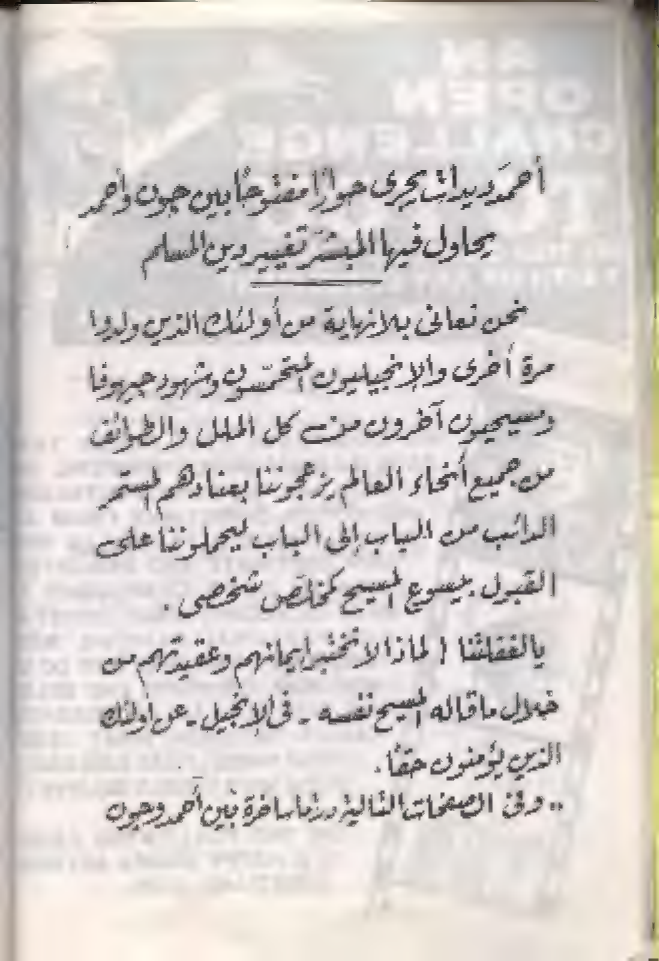 أحمد ديدات يجرى حوارًا مفتوحًا بين جون وأحمد
يحاول فيها المبشر تغيير دين المسلم
نحن نعانى بلا نهاية من أولئك الذين ولدوا
مرة أخرى والإنجيليون المتحمسون وشهود جيهوفا
ومسيحيون آخرون من كل الملل والطوائف
من جميع أنحاء العالم يزعجوننا بعنادهم المستمر
الدائب من الباب إلى الباب ليحملوننا على
القبول بيسوع المسيح كمخلص شخصى .
يالغفلتنا ! لماذا لا نختبر إيمانهم وعقيدتهم من
خلال ما قاله المسيح نفسه - فى الإنجيل - عن أولئك
الذين يؤمنون حقًا .
.. وفى الصفحات التالية دراما ساخرة بين أحمد وجون
AN
OPEN
CHALLENGE